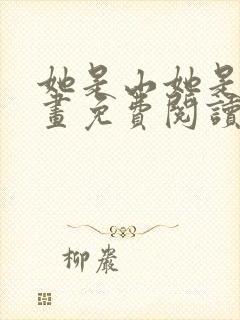 她是山她是
畫免費閱讀
柳巖